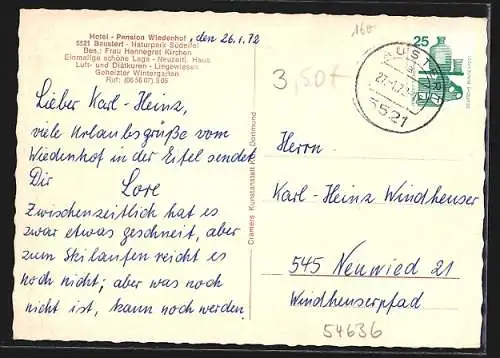 Hotel - Pension Wiedenhof, den 26.1.72
5521 Baustert - Naturpark Südeifel
Bes.: Frau Hannegret Kirchen
Einmalige schöne Lage - Neuzeitl. Haus
Luft- und Diätkuren - Liegewiesen
Geheizter Wintergarten
Ruf: (06567) 506
Lieber Karl-Heinz,
viele Urlaubsgrüße vom
Wiedenhof in der Eifel sendet
Dir Lore
Zwischenzeitlich hat es
zwar etwas geschneit, aber
zum Skilaufen reicht es
noch nicht; aber was noch
nicht ist, kann noch werden.
Cramers Kunstanstalt KG, Dortmund
3,50
BAUSTERT
27.-1.72
5521
25
DEUTSCHE BUNDESPOST
Herrn
Karl-Heinz Windheuser
545 Neuwied 21
Windheuserpfad
54636